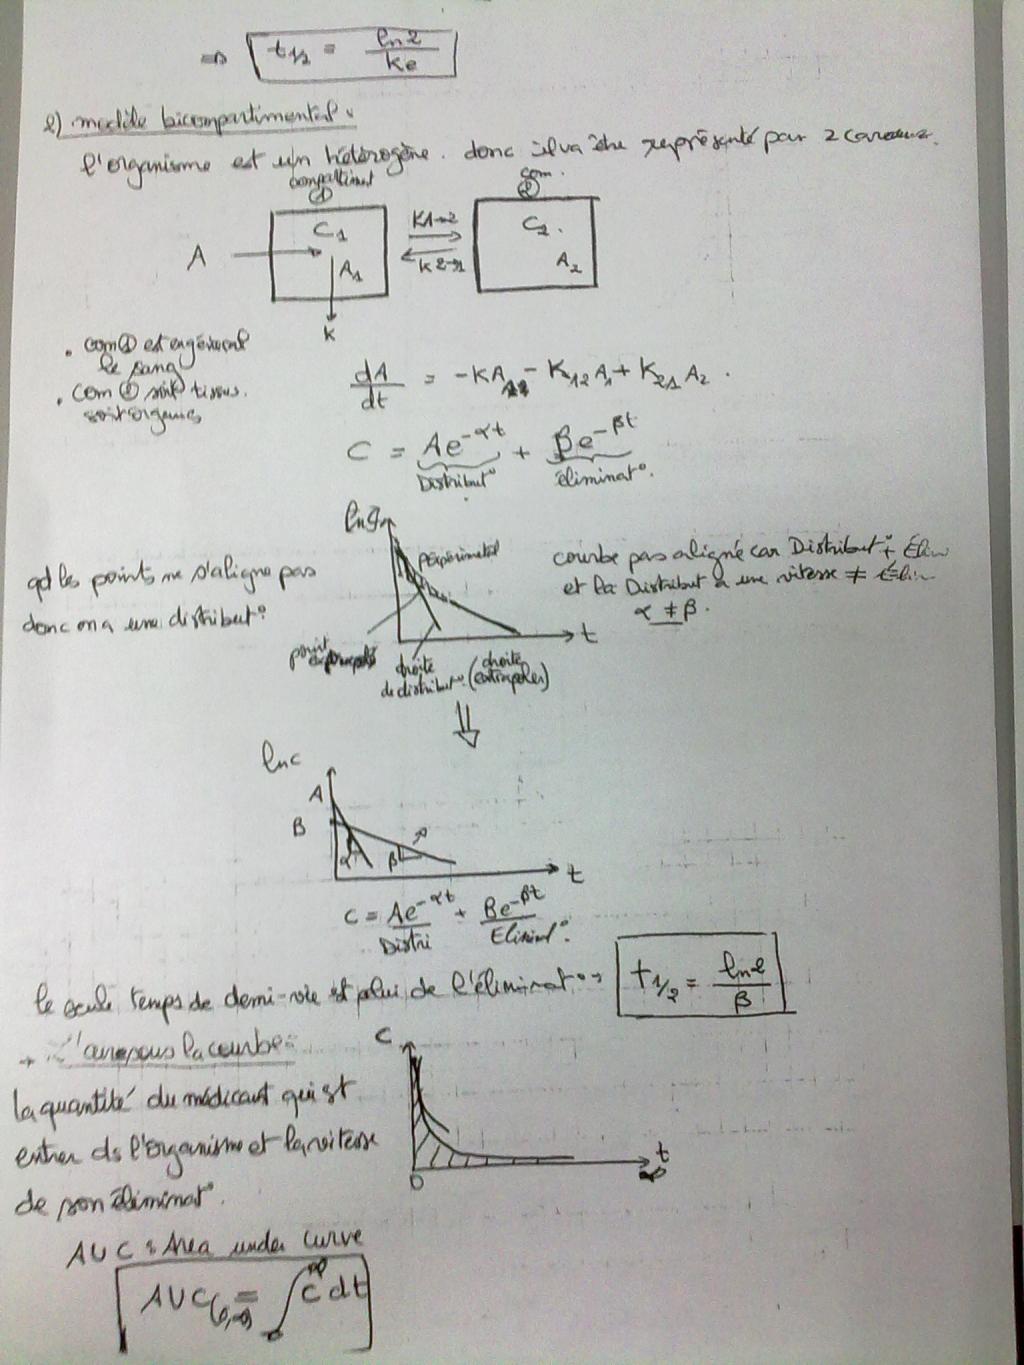 => t1/2 = ln2 / ke
2) modèle bicompartimental :
l'organisme est un hétérogène. donc il va être représenté par 2
compartiment com.
① ②
C1 K1→2 C2.
A A1 K2→1 A2
K
. com① est en général
le sang
. com ② soit tissus.
soit organes
dA/dt = -KA - K12 A1 + K21 A2 .
C = Ae^-αt + Be^-βt
Distribut° éliminat°.
ln
expérimental
qd les points ne s'aligne pas
donc on a une distribut°
courbe pas aligné car Distribut° + Élim
et la Distribut a une vitesse ≠ Élim
α ≠ β.
t
point
droite de distribut°. (droite extrapoler)
⇓
lnc
A
B
α β
t
C = Ae^-αt + Be^-βt
Distri Eliminat°.
le seule temps de demi-vie est celui de l'éliminat° → t1/2 = ln2 / β
→ L'aire sous la courbe :
C
la quantité du médicamt qui est
entrer ds l'organisme et la vitesse
de son éliminat°.
0 t ∞
AUC : Area under curve
AUC(0,∞) = ∫0^∞ C dt